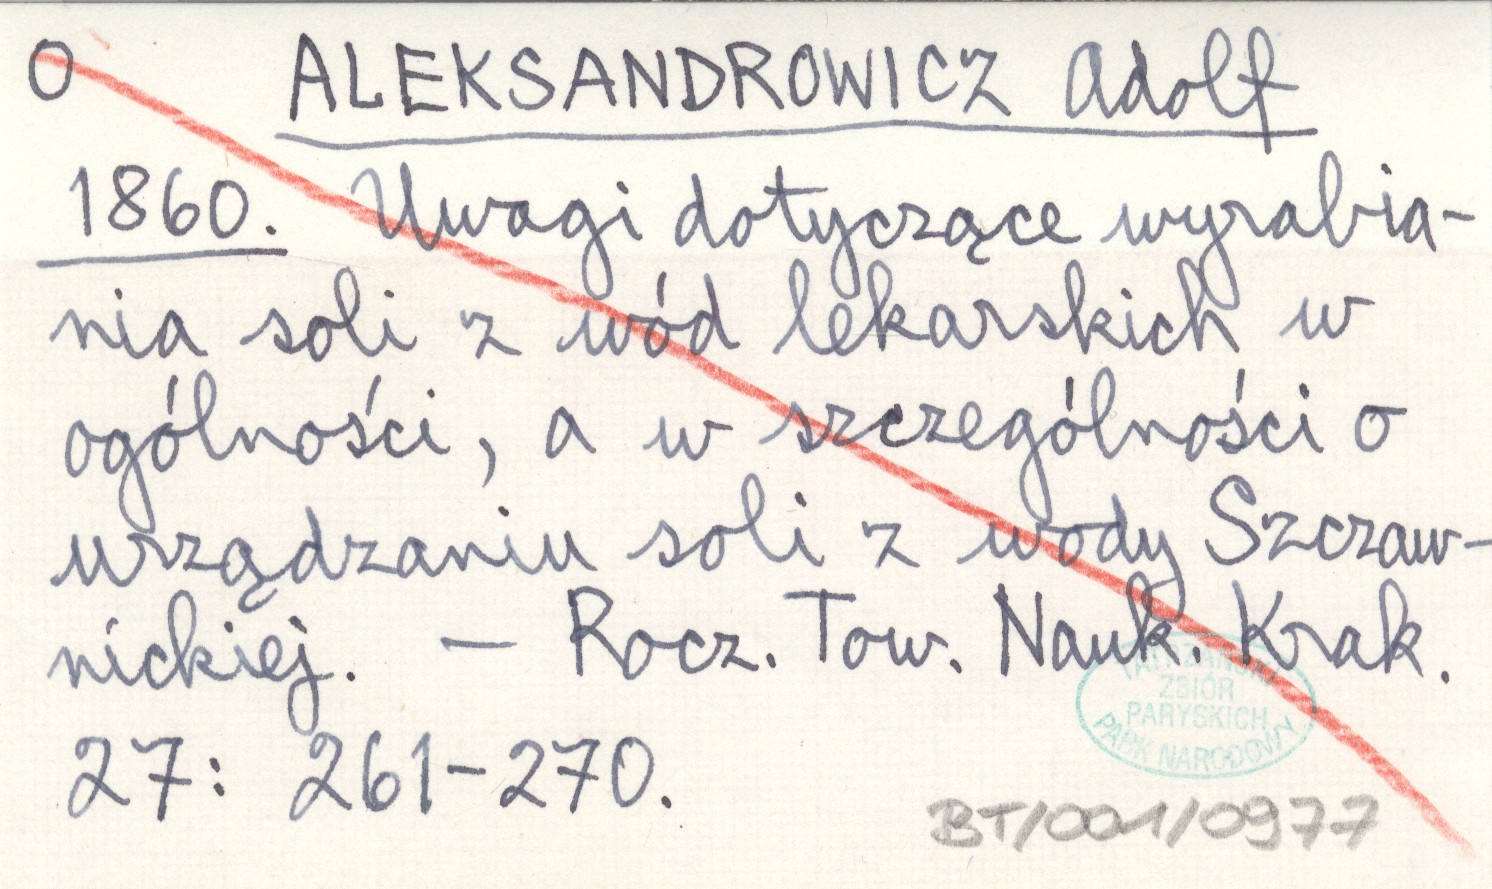 O ALEKSANDROWICZ Adolf
1860. Uwagi dotyczące wyrabia-
nia soli z wód lekarskich w
ogólności, a w szczególności o
urządzaniu soli z wody Szczaw-
nickiej. — Rocz. Tow. Nauk. Krak.
27: 261-270.
TATRZAŃSKI
ZBIÓR
PARYSKICH
PARK NARODOWY
BT/001/0977